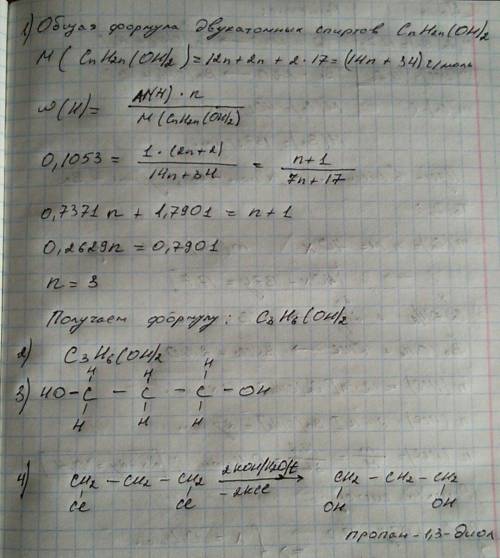 1) Общая формула двухатомных спиртов CnH2n(OH)2
M(CnH2n(OH)2) = 12n + 2n + 2·17 = (14n + 34) г/моль
ω(H) = Ar(H)·n / M(CnH2n(OH)2)
0,1053 = 1·(2n+2) / 14n+34 = n+1 / 7n+17
0,7371n + 1,7901 = n + 1
0,2629n = 0,7901
n = 3
Получаем формулу: C3H6(OH)2
2) C3H6(OH)2
H H H
3) HO – C – C – C – OH
H H H
4) CH2 – CH2 – CH2 2KOH/H2O/t → CH2 – CH2 – CH2
Cl Cl –2KCl OH OH
пропан-1,3-диол